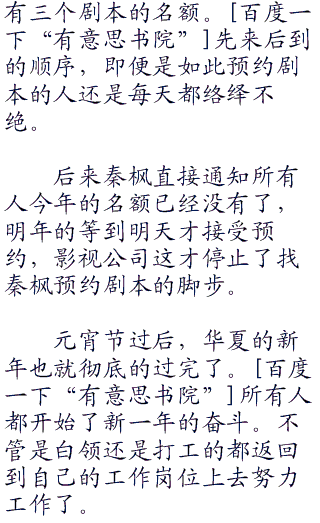 有三个剧本的名额。[百度一
下“有意思书院”]先来后到
的顺序，即便是如此预约剧
本的人还是每天都络绎不
绝。
后来秦枫直接通知所有
人今年的名额已经没有了，
明年的等到明天才接受预
约，影视公司这才停止了找
秦枫预约剧本的脚步。
元宵节过后，华夏的新
年也就彻底的过完了。[百度
一下“有意思书院”]所有人
都开始了新一年的奋斗。不
管是白领还是打工的都返回
到自己的工作岗位上去努力
工作了。